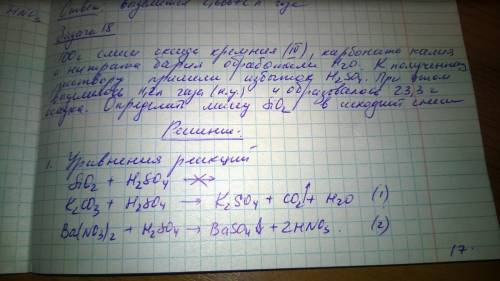 HNO₃ Ответ: выделится газа
Задача 18
100г смеси оксида кремния (IV), карбоната калия
и нитрата бария обработали H₂O. К полученному
раствору прилили избыток H₂SO₄. При этом
выделилось 1,12л газа (н.у.) и образовалось 23,3 г
осадка. Определить массу SiO₂ в исходной смеси
Решение:
1. Уравнения реакций
SiO₂ + H₂SO₄ ↛
K₂CO₃ + H₂SO₄ → K₂SO₄ + CO₂↑ + H₂O (1)
Ba(NO₃)₂ + H₂SO₄ → BaSO₄↓ + 2HNO₃. (2)
17.